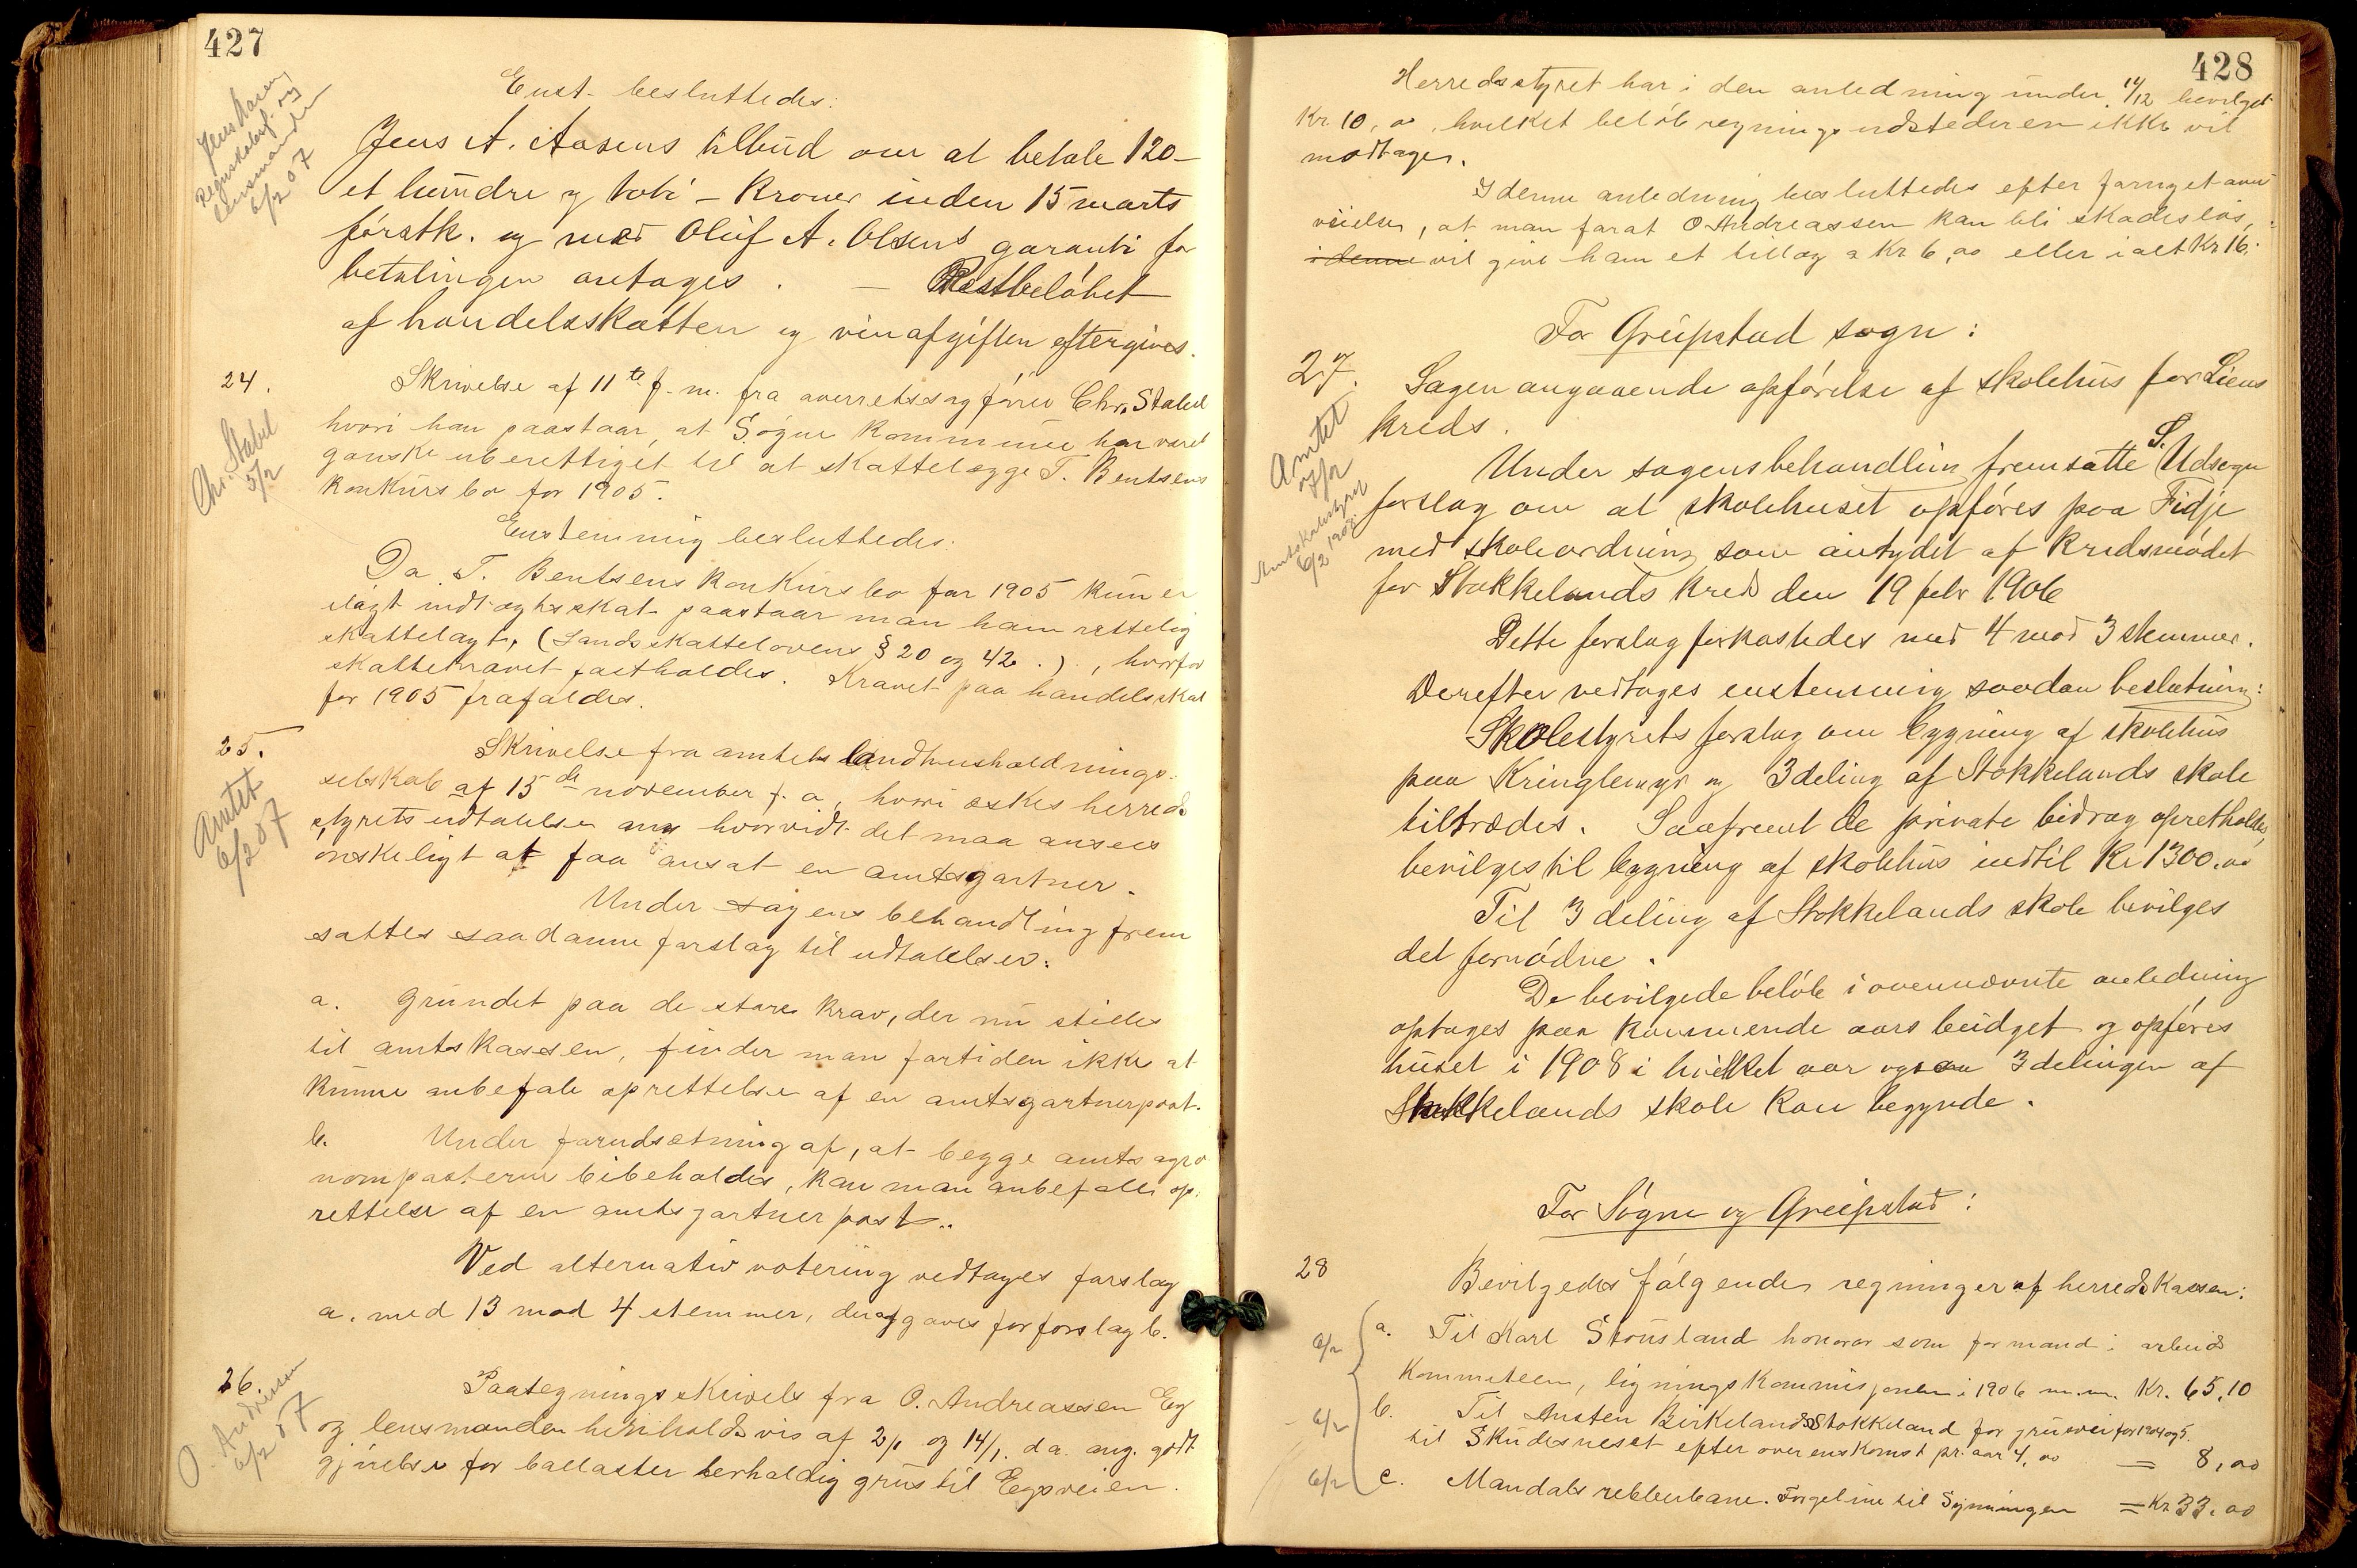 427
Jens Aasen
Regnskabsf. og
lensmanden
6/2 07
Enst. besluttedes:
Jens A. Aasens tilbud om at betale 120 –
et hundre og tobi – Kroner inden 15 marts
förstk. og med Oluf A. Olsens garanti for
betalingen antages. — Restbelöbet
af handelsskatten og vinafgiften eftergives.
24.
Chr. Stabel
5/2
Skrivelse af 11te f. m. fra overretssagförer Chr. Stabel
hvori han paastaar, at Sögne Kommune har været
ganske uberettiget til at skattelægge T. Bentsens
Konkursbo for 1905.
Enstemmig besluttedes:
Da T. Bentsens Konkursbo for 1905 kun er
ilagt indtægtsskat paastaar man ham rettelig
skattelagt, (Landsskattelovens § 20 og 42.)., hvorfor
skattekravet fastholdes. Kravet paa handelsskat
for 1905 frafaldes.
25.
Amtet
6/2 07
Skrivelse fra amtets landhusholdnings-
selskab af 15de november f. a., hvori æskes herreds
styrets udtalelse om hvorvidt det maa ansees
önskeligt at faa ansat en amtsgartner.
Under sagens behandling frem
sattes saadanne forslag til udtalelser:
a. Grundet paa de store krav, der nu stilles
til amtskassen, finder man fortiden ikke at
kunne anbefale oprettelse af en amtsgartnerpost.
b. Under forudsætning af, at begge amtsagro
nomposterne bibeholdes, kan man anbefalle op-
rettelse af en amtsgartnerpost..
Ved alternativ votering vedtages forslag
a. med 13 mod 4 stemmer, der afgaves for forslag b.
26.
O. Andreassen
6/2 07
Paategningsskrivelse fra O. Andreassen Eeg
og lensmanden henholdsvis af 2/1 og 14/1 d. a. ang. godt
gjörelse for ballaster berholdig grus til Eegsveien.
428
Herredsstyret har i den anledning under 14/12 bevilget
Kr. 10,00, hvilket belöb regningsudstederen ikke vil
modtage.
I denne anledning besluttedes efter foreget
, at man forat O Andreassen kan bli skadeslös,
i denne vil give ham et tillæg a Kr 6,00 eller ialt Kr 16.
For Greipstad sogn:
27.
Amtet
7/2
Amtskolestyret
6/2 1907.
Sagen angaaende opförelse af skolehus for Liens
kreds.
Under sagens behandling fremsatte S. Udsogn
forslag om at skolehuset opföres paa Fidje
med skoleordning som antydet af kredsmödet
for Stokkelands kreds den 19 febr 1906
Dette forslag forkastedes med 4 mod 3 stemmer.
Derefter vedtages enstemmig saadan beslutning:
Skolestyrets forslag om bygning af skolehus
paa Kringlemyr og 3deling af Stokkelands skole
tiltrædes. Saafremt de private bidrag opretholdes,
bevilges til bygning af skolehus indtil Kr 1300.00
Til 3 deling af Stokkelands skole bevilges
det fornödne.
De bevilgede belöb i ovennævnte anledning
optages paa kommende aars budget og opföres
huset i 1908 i hvilket aar ogsaa 3 delingen af
Stokkelands skole kan begynde.
For Sögne og Greipstad:
28
Bevilgedes fölgende regninger af herredskassen:
6/2 a. Til Karl Stousland honorar som formand i arbeids
Kommiteen, ligningskommisjonen i 1906 m.m. Kr. 65,10
6/2 b. Til Austen Birkeland Stokkeland for grusvei for 1904 og 5.
til Skudesneset efter overenskomst pr. aar 4,00 = 8,00
6/2 c. Mandals rebberbane. Fangeline til Sjymningen = Kr 33,00